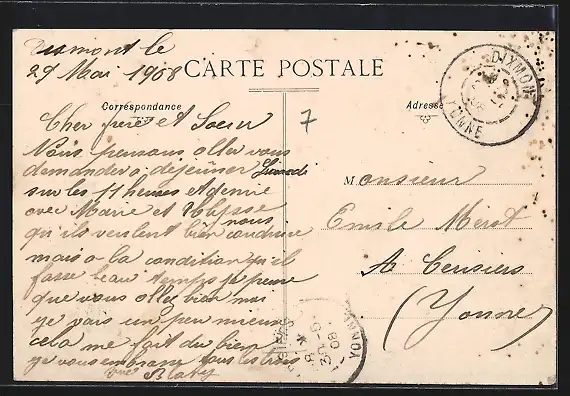 Dixmont le
29 Mai 1908
CARTE POSTALE
Correspondance
Adresse
7
DIXMONT
YONNE
Cher frère et Soeur
Nous pensons aller vous
demander a déjeuner Lundi
sur les 11 heures et demie
avec Marie et Ulysse
qu'ils veulent bien nous conduire
mais a la condition qu'il
fasse beau temps je pense
que vous allez bien moi
je vais un peu mieux
cela me fait du bien
je vous embrasse tous les trois
Blavy
Monsieur
Emile Merot
A Cerisiers
(Yonne)
YONNE